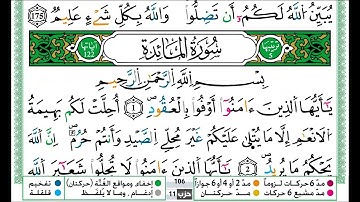 يُبَيِّنُ ٱللَّهُ لَكُمْ أَن تَضِلُّوا۟ وَٱللَّهُ بِكُلِّ شَىْءٍ عَلِيمٌ 175
ترتيبها 5 سُورَةُ المَائِدَةِ آياتها 122
بِسْمِ ٱللَّهِ ٱلرَّحْمَٰنِ ٱلرَّحِيمِ
يَٰٓأَيُّهَا ٱلَّذِينَ ءَامَنُوٓا۟ أَوْفُوا۟ بِٱلْعُقُودِ 1 أُحِلَّتْ لَكُم بَهِيمَةُ
ٱلْأَنْعَٰمِ إِلَّا مَا يُتْلَىٰ عَلَيْكُمْ غَيْرَ مُحِلِّى ٱلصَّيْدِ وَأَنتُمْ حُرُمٌ إِنَّ ٱللَّهَ
يَحْكُمُ مَا يُرِيدُ 2 يَٰٓأَيُّهَا ٱلَّذِينَ ءَامَنُوا۟ لَا تُحِلُّوا۟ شَعَٰٓئِرَ ٱللَّهِ
106
حزب 11
مدّ 6 حركات لزوماً مدّ 2 أو 4 أو 6 جوازاً إخفاء، ومواقع الغُنَّة (حركتان) تفخيم
مدّ مشبع 6 حركات مدّ حركتان إدغام، وما لا يُلفَظ قلقلة